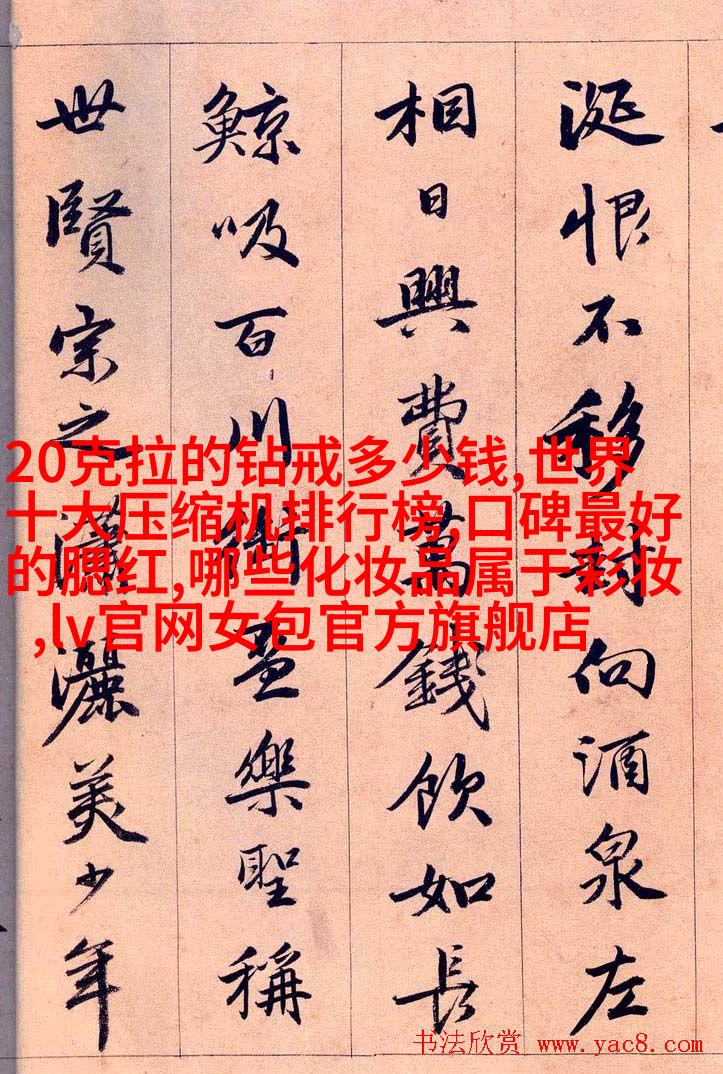 涎恨不移封向酒泉左
相日興費萬錢飲如長
鯨吸百川銜盃樂聖稱
世賢宗之瀟灑美少年
20克拉的钻戒多少钱,世界
十大压缩机排行榜,口碑最好
的腮红,哪些化妆品属于彩妆
,lv官网女包官方旗舰店
书法欣赏 www.yac8.com